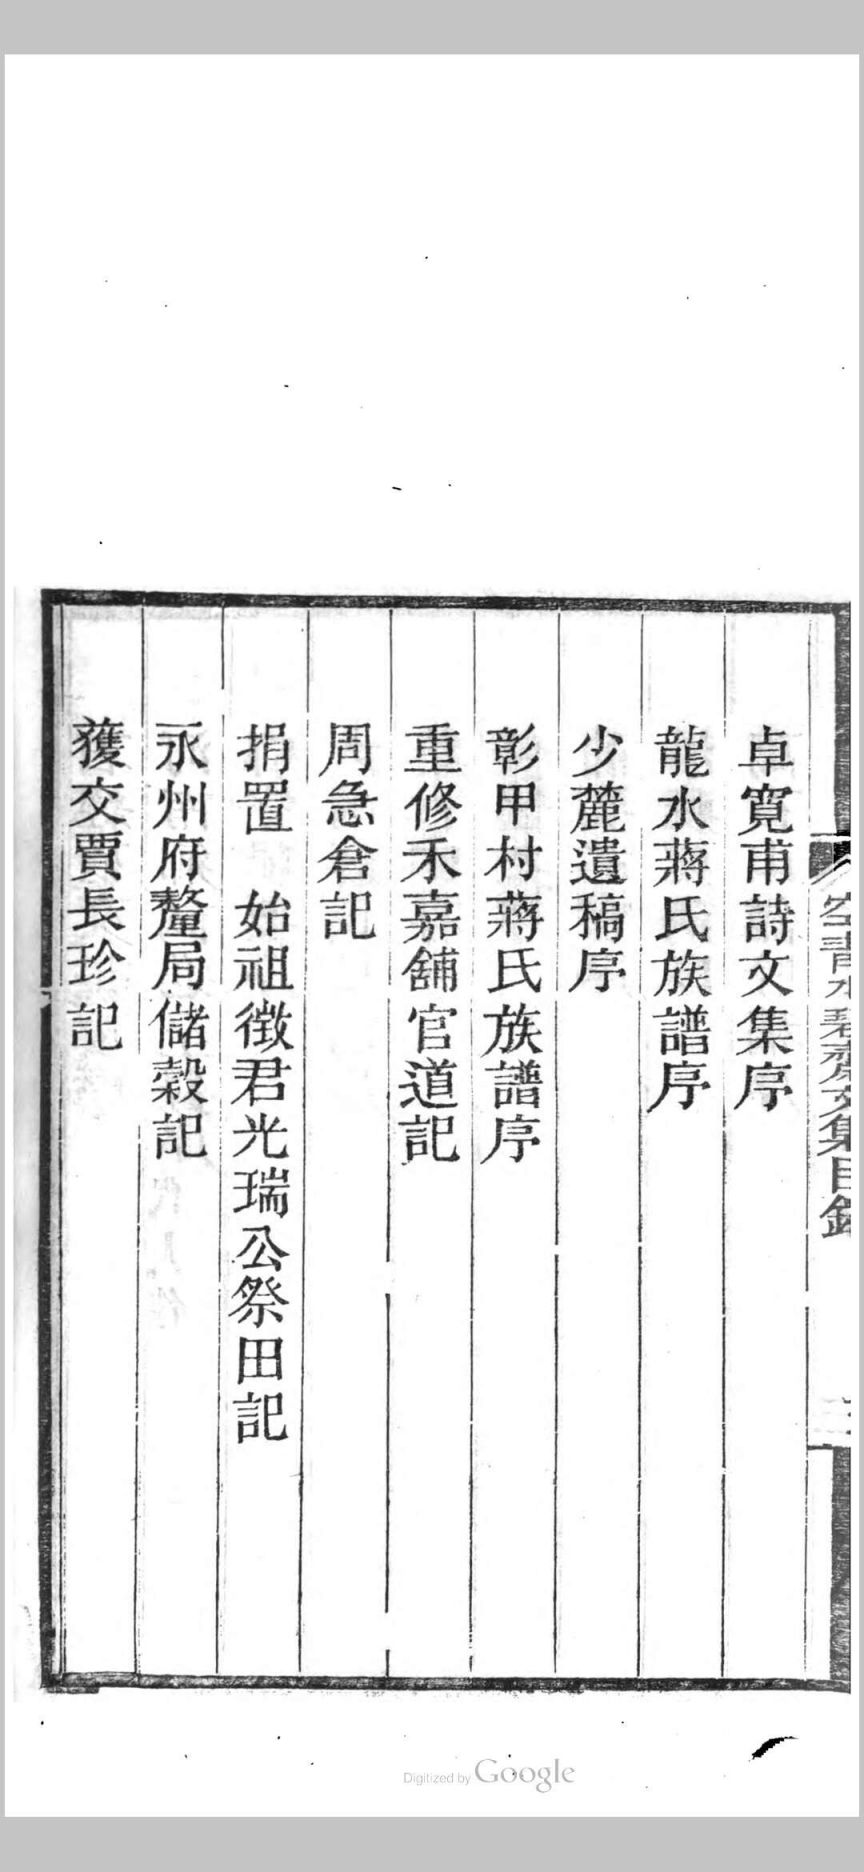 空青水碧齋文集目錄
卓寬甫詩文集序
龍水蔣氏族譜序
少麓遺稿序
彰甲村蔣氏族譜序
重修禾嘉舖官道記
周急倉記
捐置　始祖徴君光瑞公祭田記
永州府釐局儲穀記
獲交賈長珍記
Digitized by Google